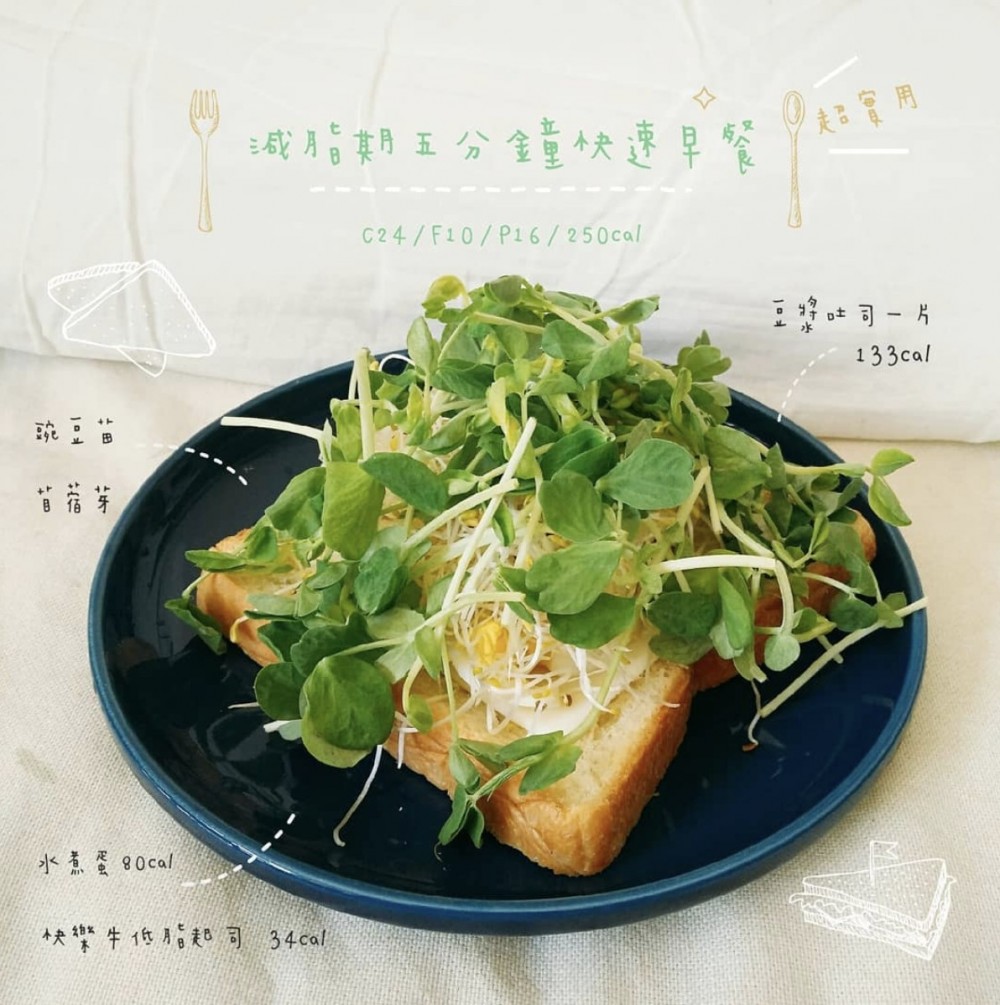 減脂期五分鐘快速早餐
超實用
C24/F10/P16/250cal
豆漿吐司一片
133cal
豌豆苗
苜蓿芽
水煮蛋80cal
快樂牛低脂起司 34cal